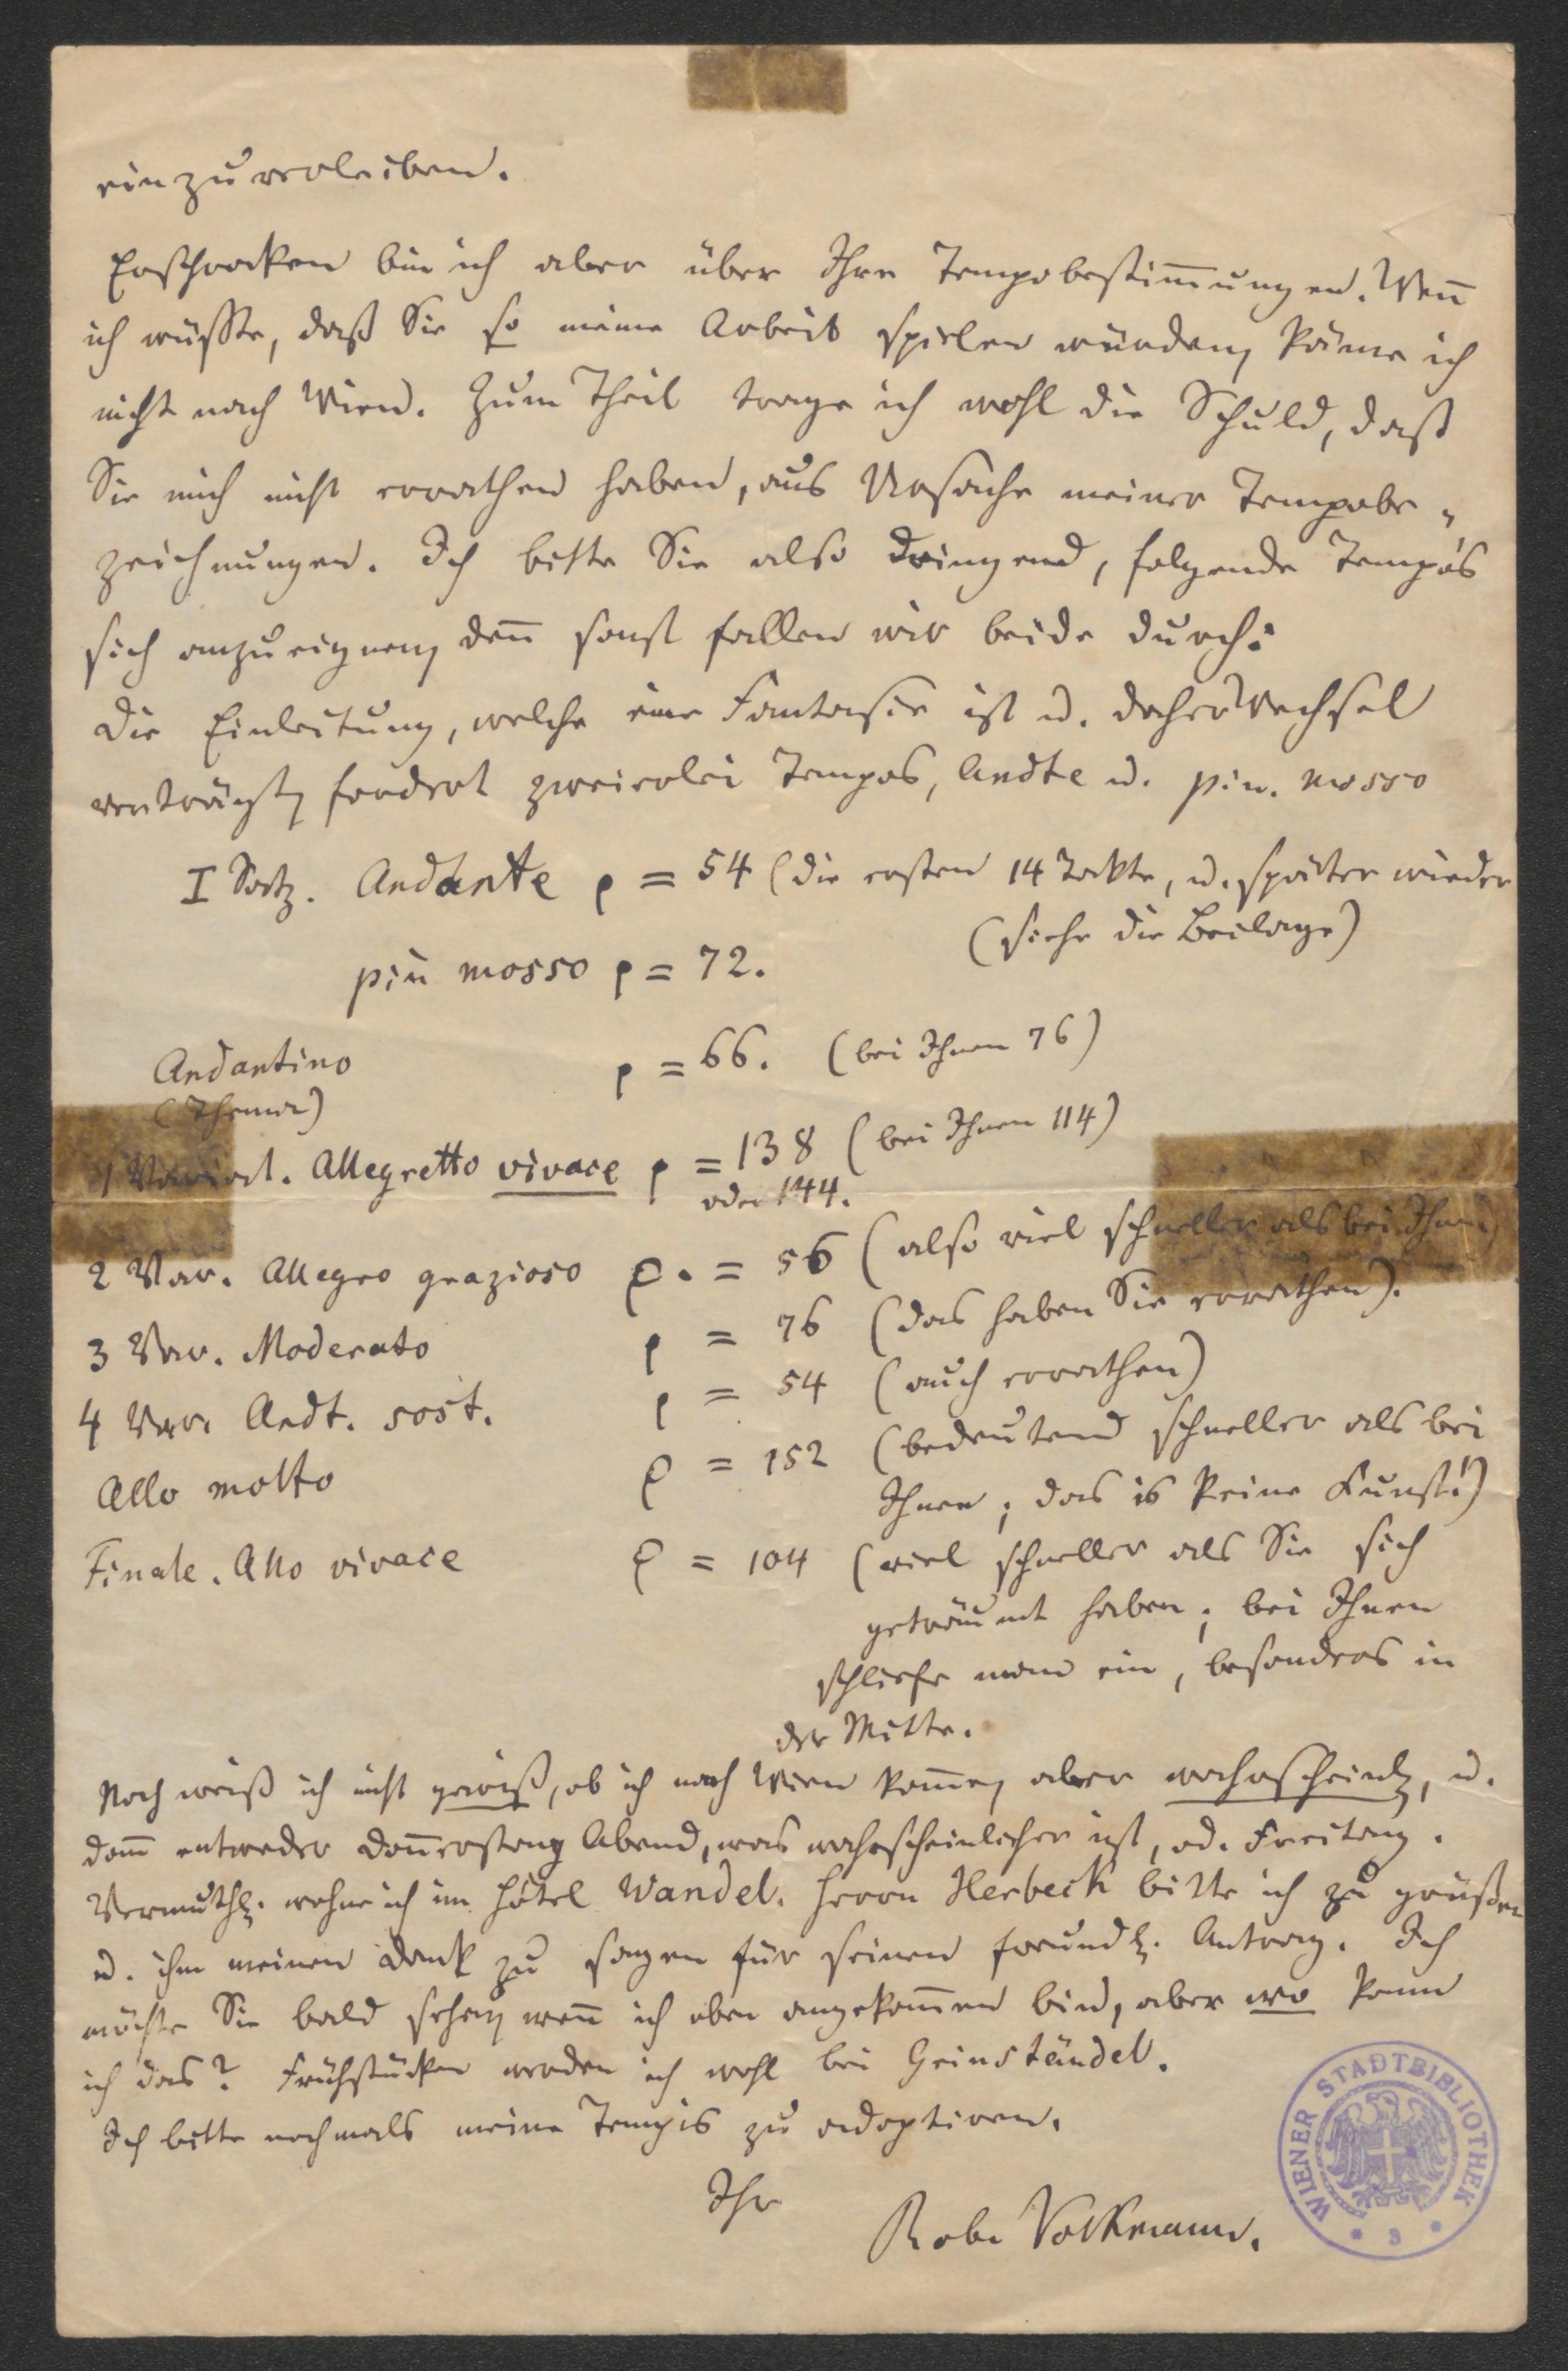 einzuverleiben.
Erschrocken bin ich aber über Ihre Tempobestim̄ungen. Wen̄
ich wüsste, daß Sie so meine Arbeit spielen würden, käme ich
nicht nach Wien. Zum Theil trage ich wohl die Schuld, daß
Sie mich nicht errathen haben, aus Ursache meiner Tempobe-
zeichnungen. Ich bitte Sie also dringend, folgende Tempo's
sich anzueignen, den̄ sonst fallen wir beide durch:
Die Einleitung, welche eine Fantasie ist u. daher Wechsel
verträgt, fordert zweierlei Tempos, Andte u. piu. mosso
I Satz. Andante ♩ = 54 (die ersten 14 Takte, u. später wieder
(siehe die Beilage)
più mosso ♩ = 72.
Andantino ♩ = 66. (bei Ihnen 76)
(Thema)
1 Variat. Allegretto vivace ♩ = 138 (bei Ihnen 114)
oder 144.
2 Var. Allegro grazioso 𝅗𝅥. = 56 (also viel schneller als bei Ihnen)
3 Var. Moderato ♩ = 76 (das haben Sie errathen).
4 Var. Andt. sost. ♩ = 54 (auch errathen)
Allo molto 𝅗𝅥 = 152 (bedeutend schneller als bei
Ihnen; das is keine Kunst!)
Finale. Allo vivace 𝅗𝅥 = 104 (viel schneller als Sie sich
geträumt haben; bei Ihnen
schliefe man ein, besonders in
der Mitte.
Noch weiß ich nicht gewiß, ob ich nach Wien kom̄e, aber wahrscheinl., u.
dan̄ entweder Don̄erstag Abend, was wahrscheinlicher ist, od. Freitag.
Vermuthl. wohne ich im Hôtel Wandel. Herrn Herbeck bitte ich zu grüßen
u. ihm meinen Dank zu sagen für seinen freundl. Antrag. Ich
möchte Sie bald sehen, wen̄ ich oben angekom̄en bin, aber wo kann
ich das? Frühstücken werden ich wohl bei Geinständel.
Ich bitte nochmals meine Tempis zu adoptiren.
Ihr
Robr Volkmann.
WIENER STADTBIBLIOTHEK